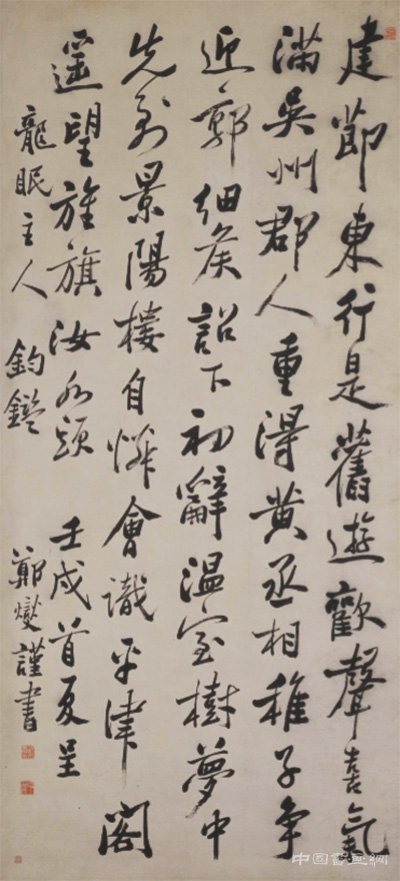 建節東行是舊遊歡聲喜氣
滿吳州郡人重得黃丞相稚子争
迎郭細侯詔下初辭溫室樹夢中
先到景陽樓自憐曾識平津閣
遥望旌旗汝水頭 壬戌首夏呈
龍眠主人 鈞鑒
鄭燮謹書
中国書畫網